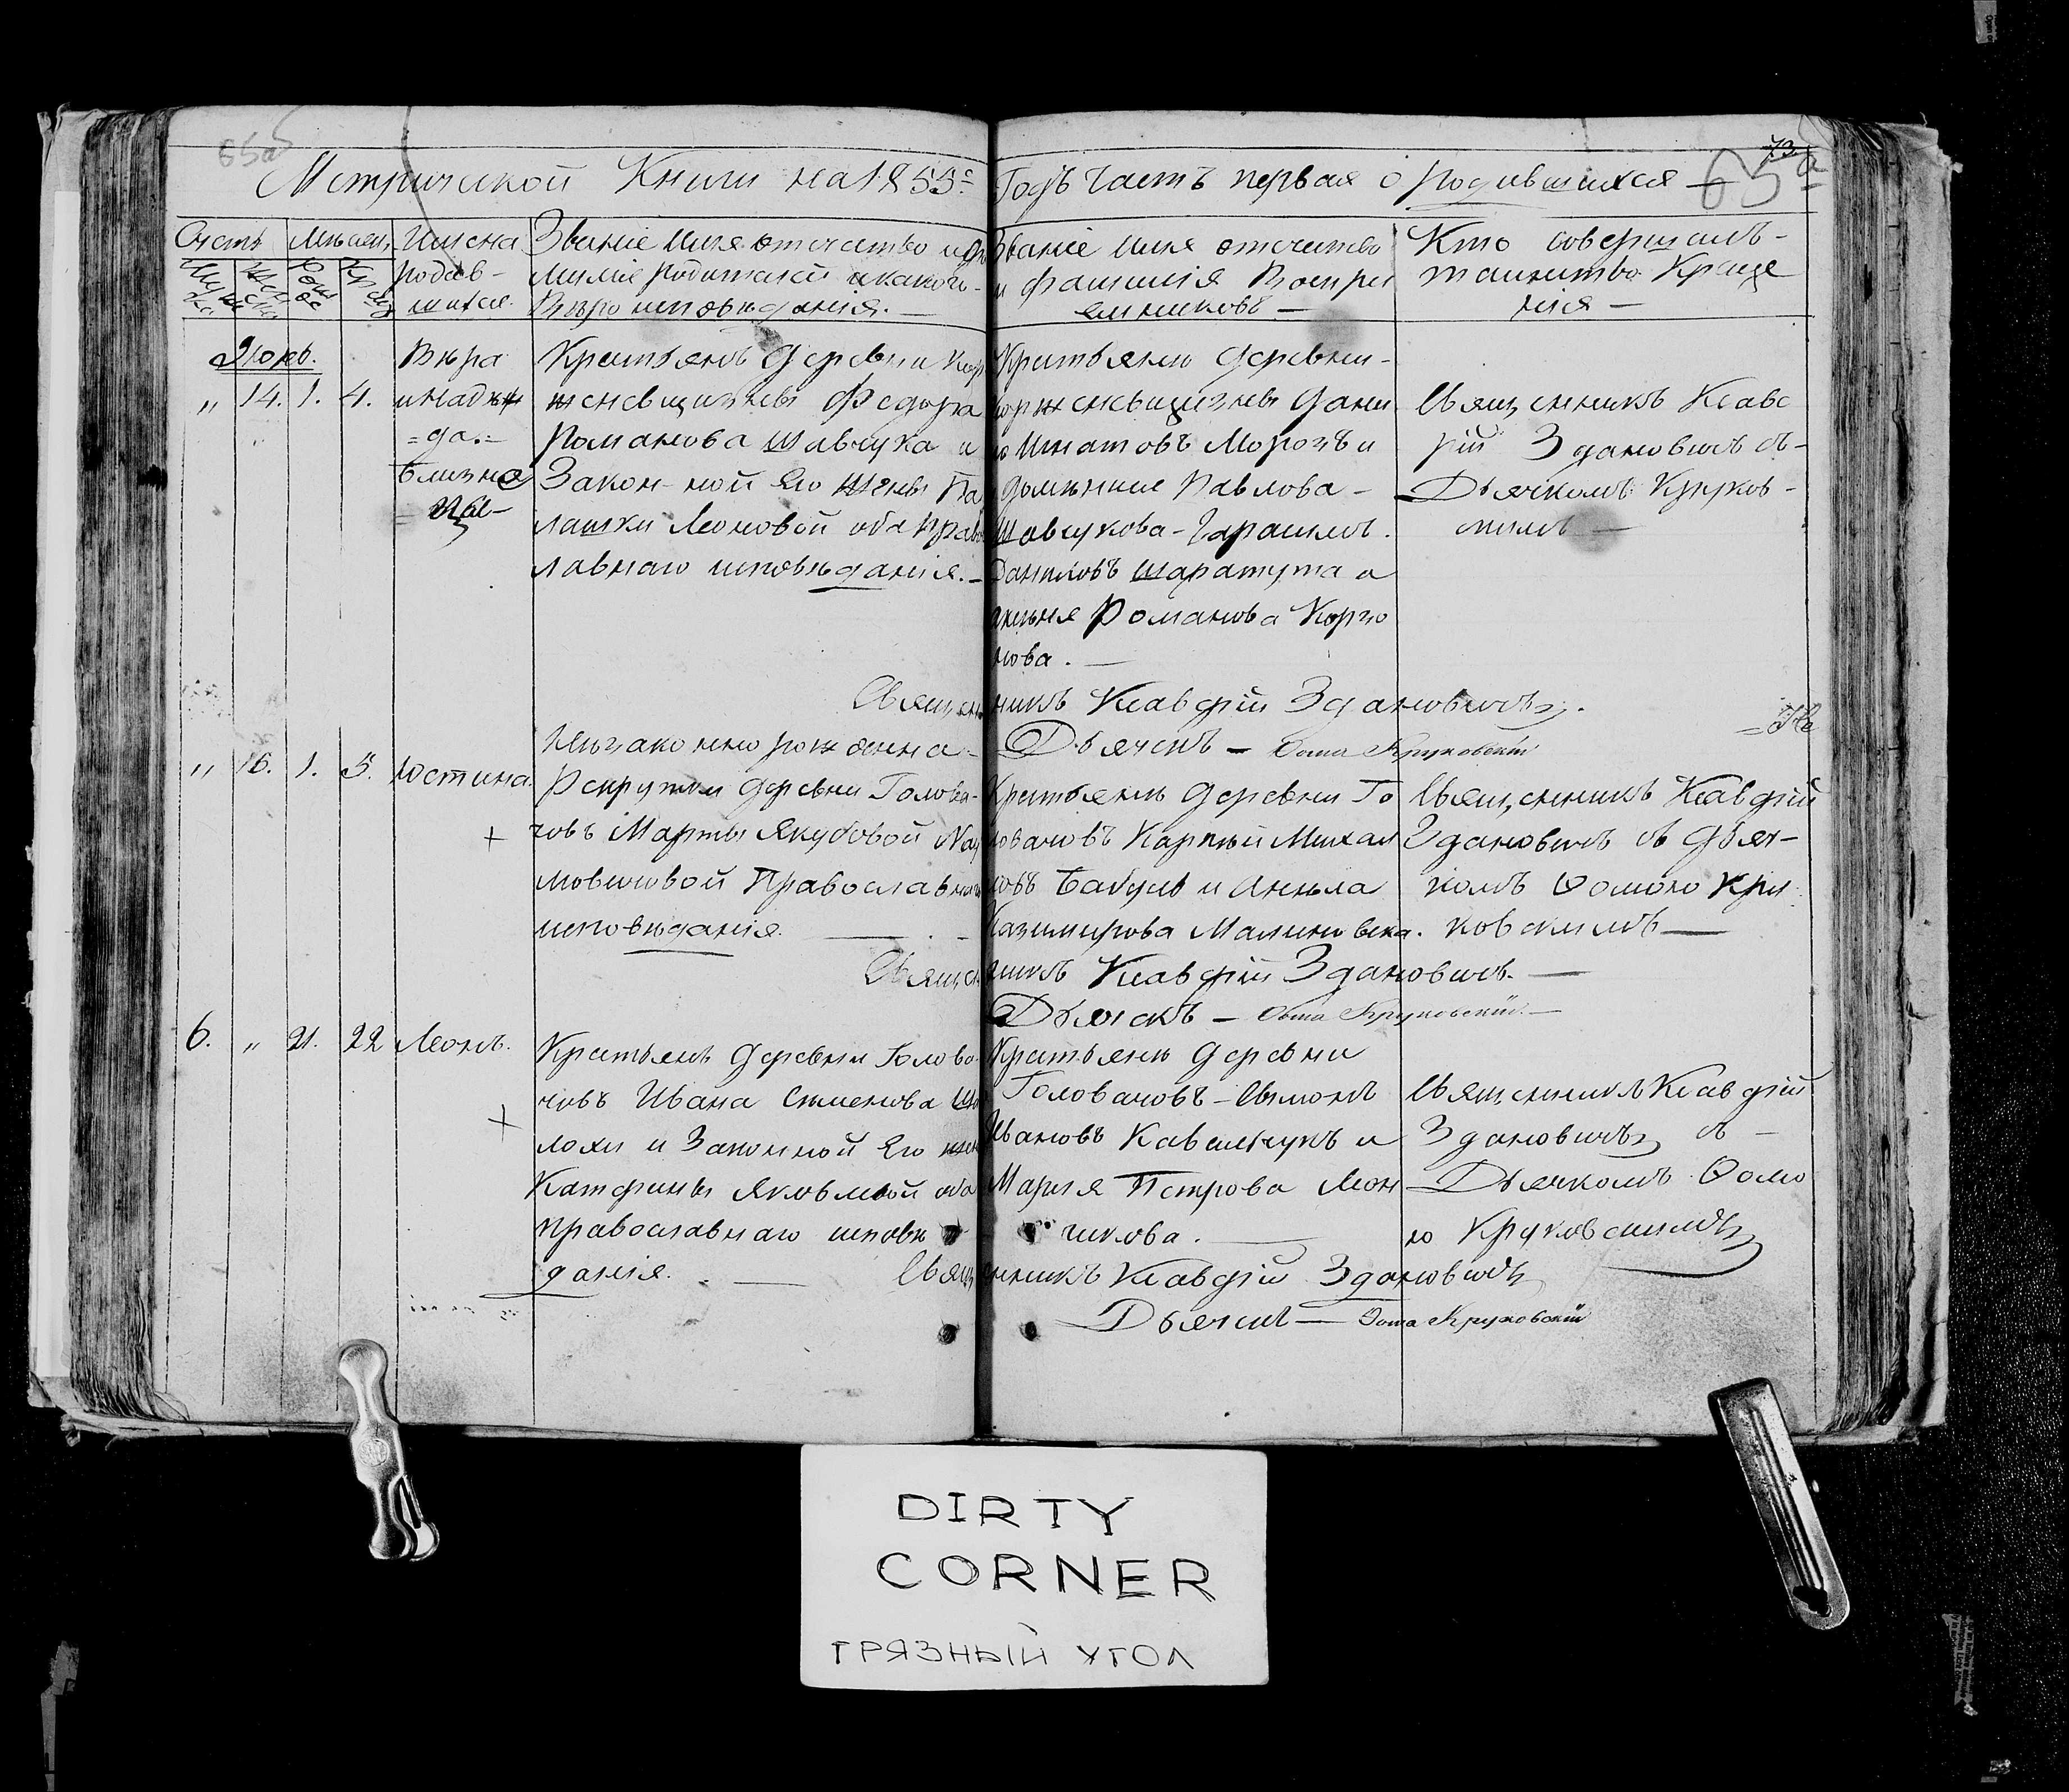 73.
Метрической Книги на 1855го Годъ часть первая о родившихся —
65а
Счетъ
Мѣсяц.
Имена
родив-
шихся.
Званіе имя отчество и фа
милія родителей и какого
Вѣроисповѣданія. —
Званіе имя отчество
и фамилія Воспрі
емниковъ —
Кто совершалъ
таинство Креще
нія —
Вѣра
и Надѣж
=да.=
близне
цы
„ 14. 1. 4.
Крестьянъ деревни
женевщизны Федора
Романова Шавчука и
Законной его жены Па
лашки Леоновой оба Право
лавнаго исповѣданія. —
Крестьяне деревни
женевщизны Дани
Игнатовъ Морозъ и
Павлова —
Шавчукова — Герасимъ
Даниловъ Шаратута и
Романова Корзо
нова. —
Священникъ Клавдій
Здановичъ съ
Дьячкомъ Круков-
скимъ —
Священникъ Клавдій Здановичъ.
Дьячекъ — Фома Круковскій
„ 16. 1. 5. Юстина.
Незаконно рожденна
Рекрутки деревни Голова-
човъ Марты Якубовой На
мовичовой Православнаго
исповѣданія.
Крестьяне деревни Го
ловачовъ Карпъ Михай
ловъ Бабуль и Анеля
Казимирова Малиновска.
Священникъ Клавдій
Здановичъ съ дьяч-
комъ Фомою Кру
ковскимъ —
Священникъ Клавдій Здановичъ. —
Дьячекъ — Фома Круковскій —
6. „ 21. 22 Леонъ.
Крестьянъ деревни Голова
човъ Ивана Семенова
лохи и Законной его жены
Катерины Яковлевой оба
православнаго исповѣ
данія. —
Крестьяне деревни
Головачовъ — Сымонъ
Ивановъ Кавальчукъ и
Марія Петрова Леон
чикова. —
Священникъ Клавдій
Здановичъ съ —
Дьячкомъ Фомо
ю Круковскимъ
Священникъ Клавдій Здановичъ
Дьячекъ — Фома Круковскій
DIRTY
CORNER
ГРЯЗНЫЙ УГОЛ